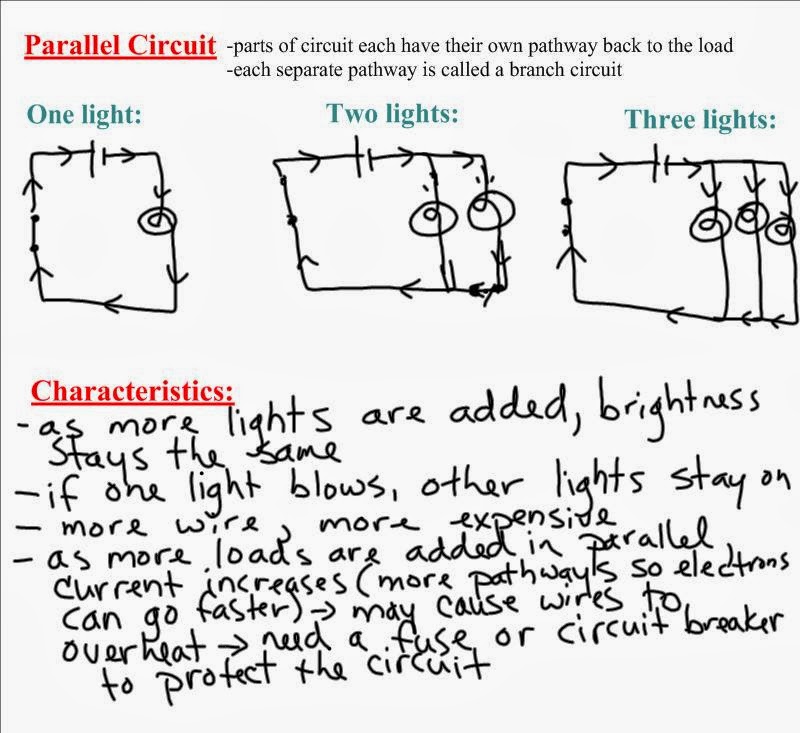 Parallel Circuit -parts of circuit each have their own pathway back to the load
-each separate pathway is called a branch circuit
One light:
Two lights:
Three lights:
Characteristics:
- as more lights are added, brightness
stays the same
- if one light blows, other lights stay on
- more wire, more expensive
- as more loads are added in parallel,
current increases (more pathways so electrons
can go faster) → may cause wires to
overheat → need a fuse or circuit breaker
to protect the circuit